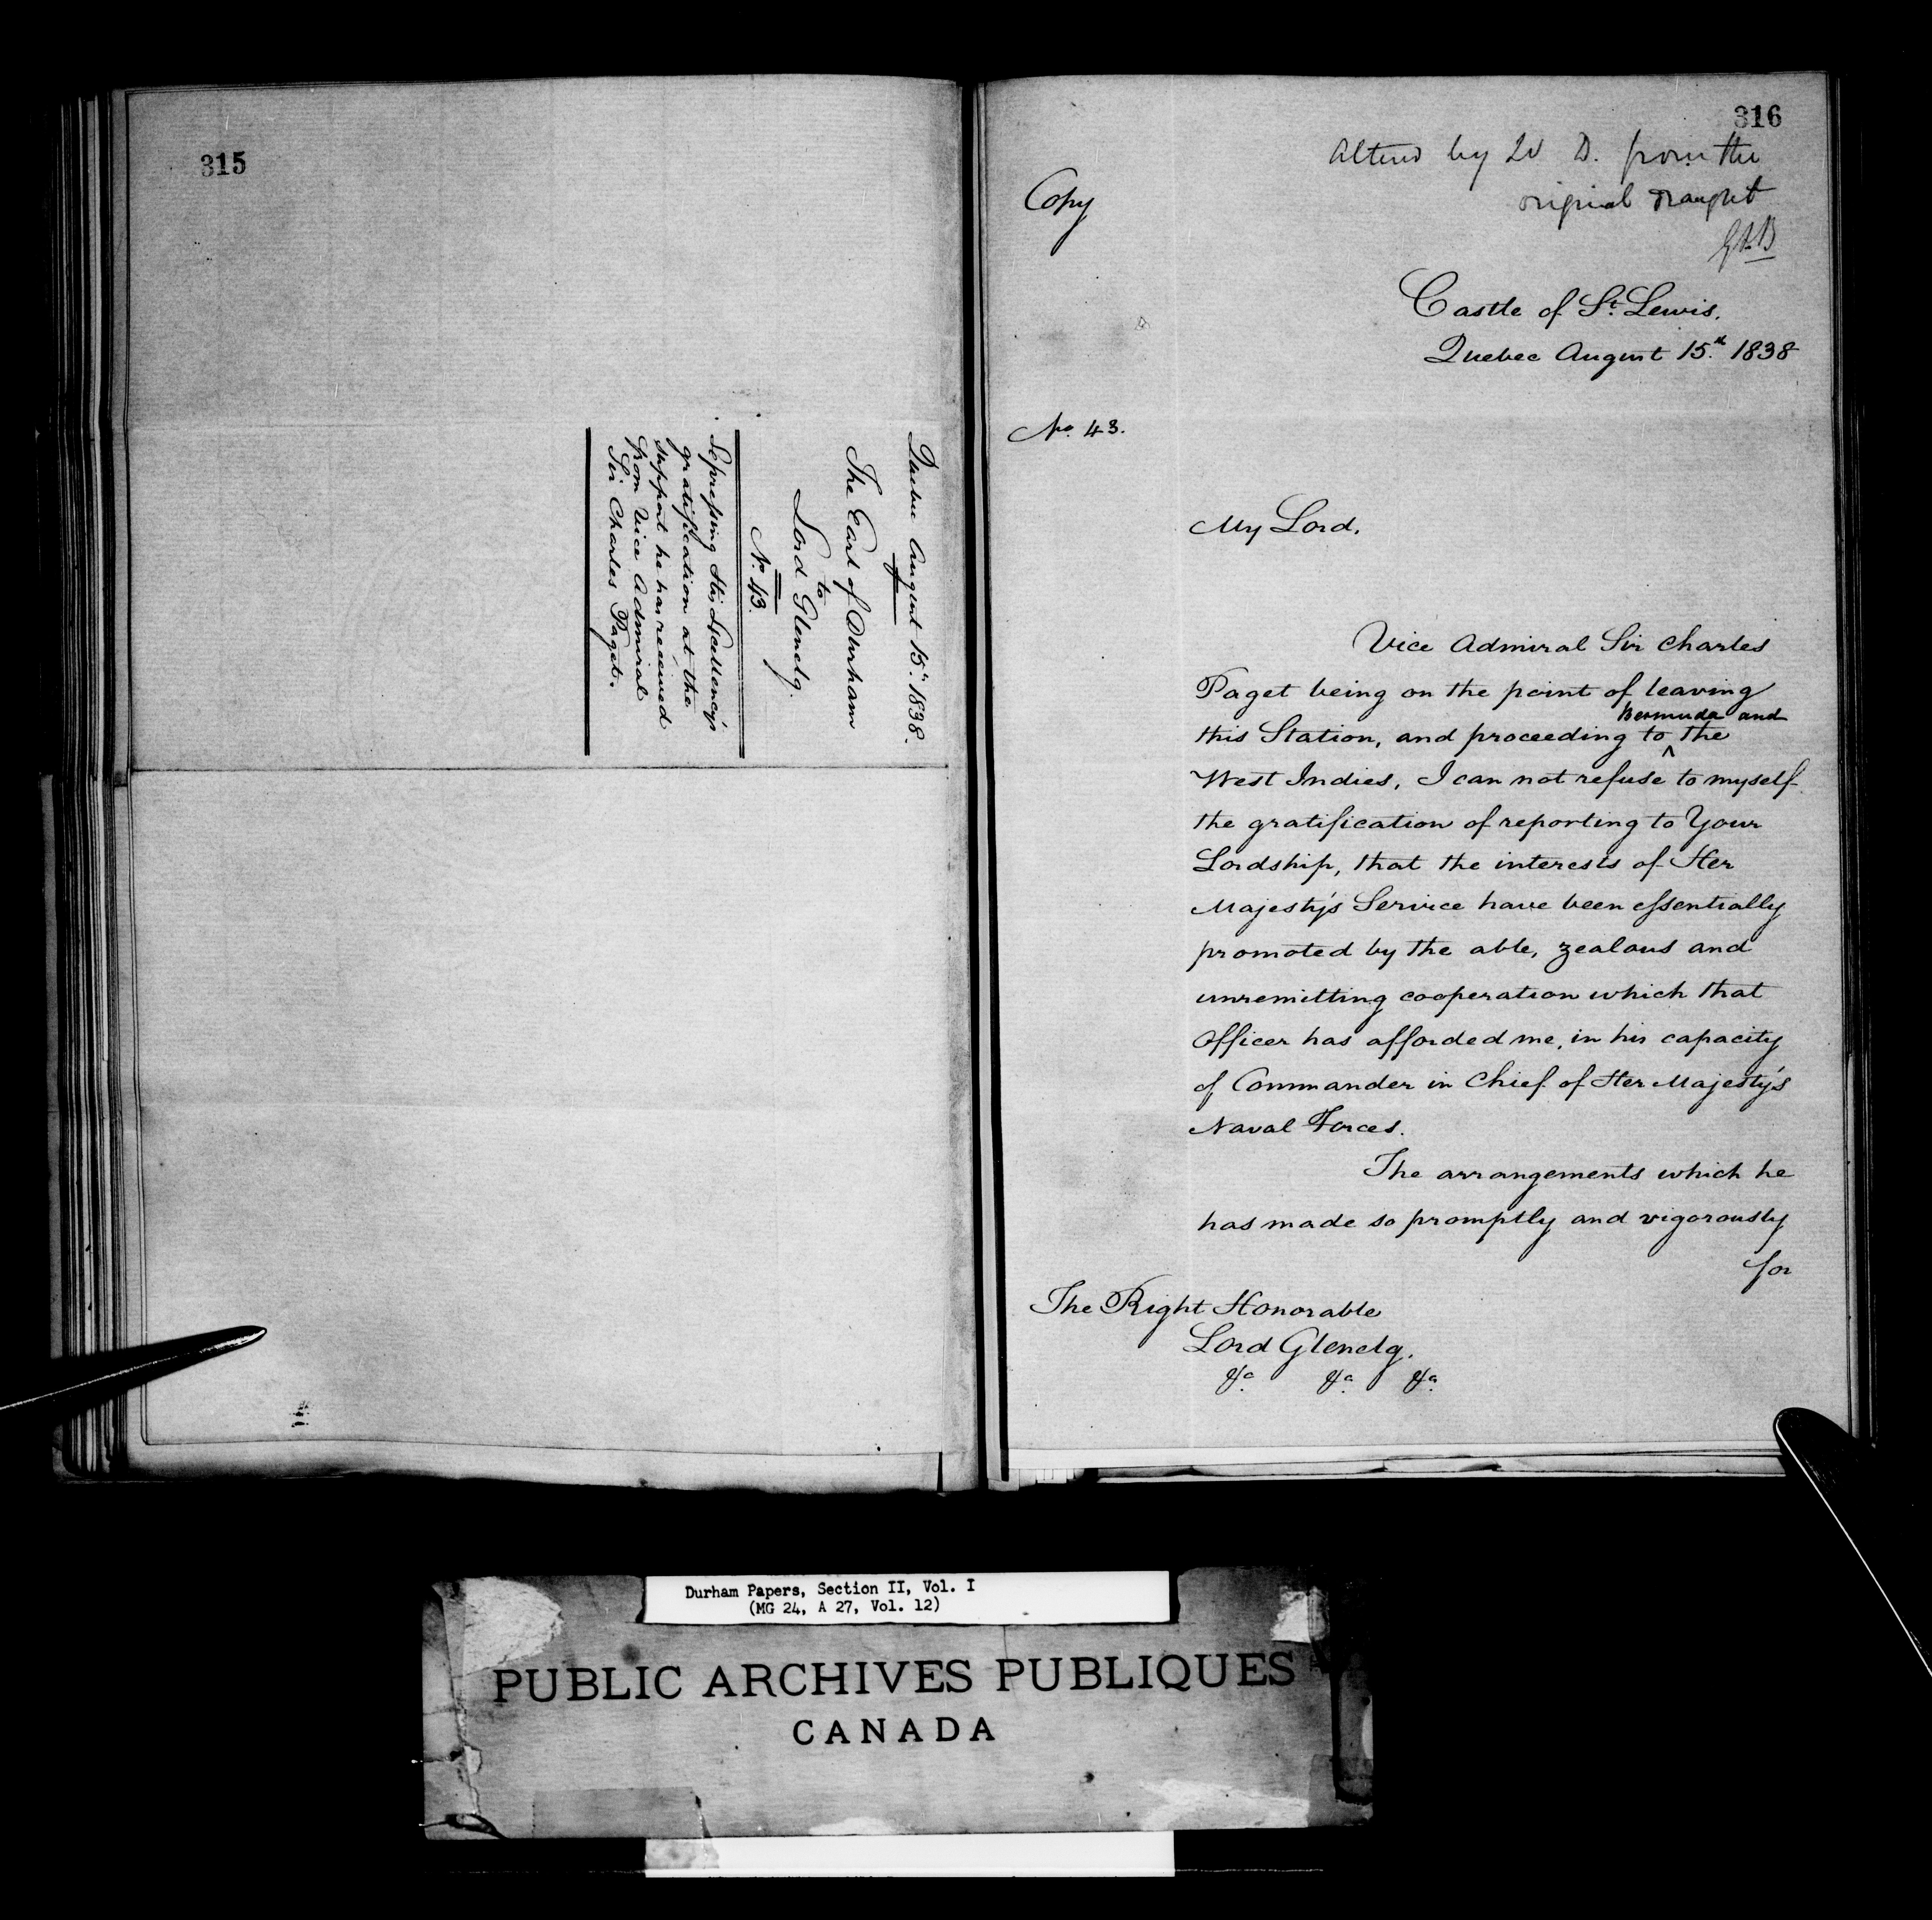 315
Quebec August 15th 1838.
The Earl of Durham
to
Lord Glenelg.
No. 43.
Expressing His Excellency's
gratification at the
support he has received
from Vice Admiral
Sir Charles Paget.
316
Altered by Ld D. from the
original draught
Copy
Castle of St. Lewis.
Quebec August 15.th 1838
No. 43.
My Lord.
Vice Admiral Sir Charles
Paget being on the point of leaving
Bermuda and
this Station, and proceeding to ^ the
West Indies, I can not refuse to myself
the gratification of reporting to Your
Lordship, that the interests of Her
Majesty's Service have been essentially
promoted by the able, zealous and
unremitting cooperation which that
Officer has afforded me, in his capacity
of Commander in Chief of Her Majesty's
Naval Forces.
The arrangements which he
has made so promptly and vigorously
for
The Right Honorable
Lord Glenelg.
&c &c &c
Durham Papers, Section II, Vol. I
(MG 24, A 27, Vol. 12)
PUBLIC ARCHIVES PUBLIQUES
CANADA